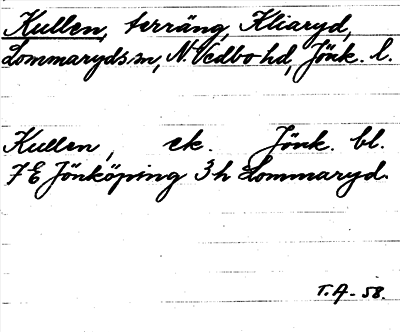 Kullen, terräng, Kliaryd,
Lommaryds sn, N. Vedbo hd, Jönk. l.
Kullen, ek. Jönk. bl.
7 E Jönköping 3 h Lommaryd.
T.A-58.